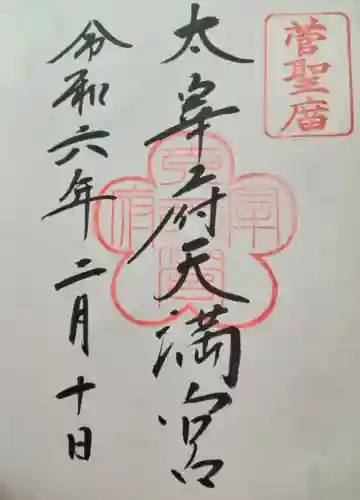 菅聖廟
太宰府天満宮
令和六年二月十日